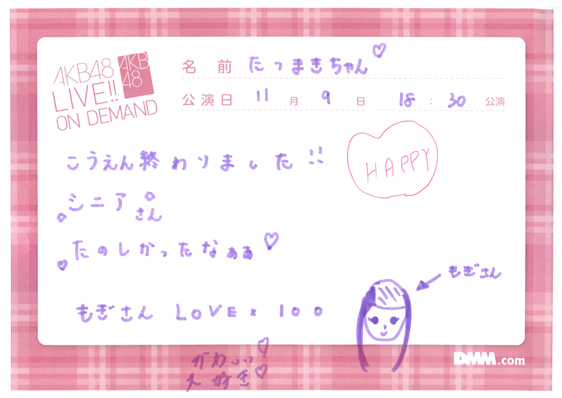 AKB48
LIVE!!
ON DEMAND
AKB
48
名前 たつまきちゃん♡
公演日 11月 9日 18:30 公演
こうえん終わりました!!
HAPPY
シニアさん
たのしかったなぁぁ♡
もぎさん
もぎさん LOVE × 100
かわいい♡
大好き♡
DMM.com